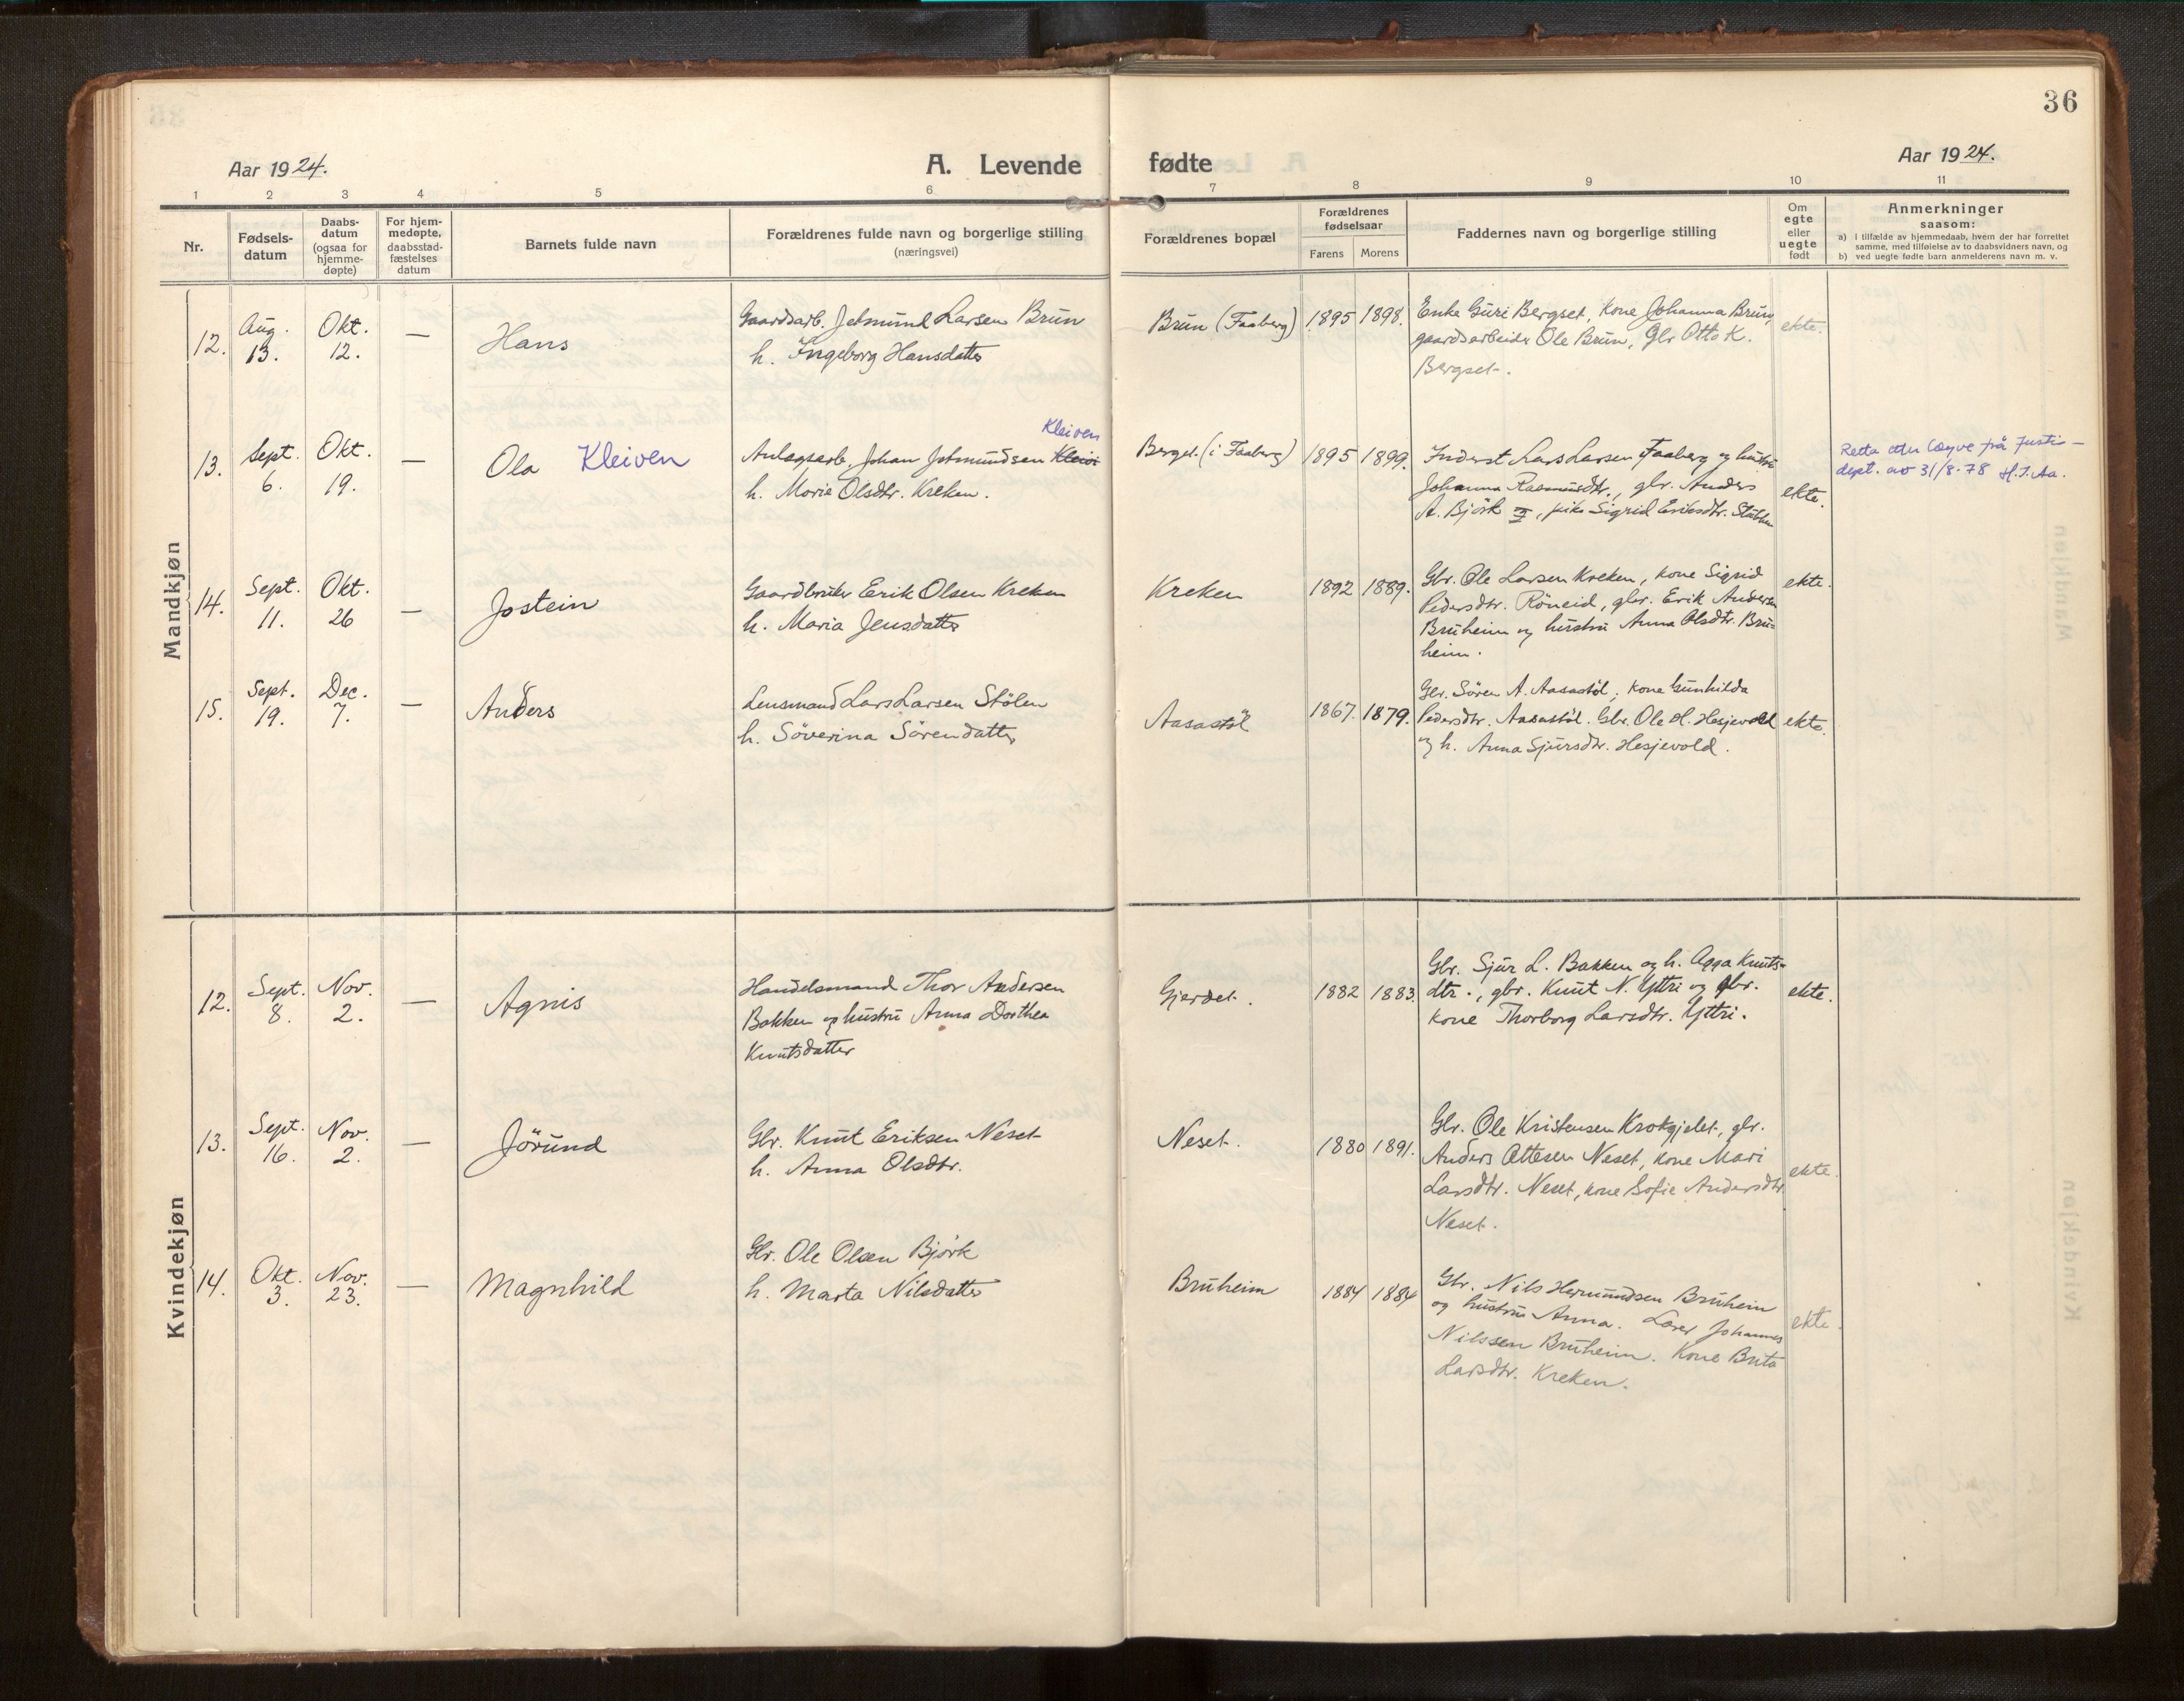 36
Aar 1924.
A. Levende fødte
Aar 1924.
1 2 3 4 5 6 7 8 9 10 11
Nr.
Fødsels-
datum
Daabs-
datum
(ogsaa for
hjemme-
døpte)
For hjem-
medøpte,
daabsstad-
fæstelses
datum
Barnets fulde navn
Forældrenes fulde navn og borgerlige stilling
(næringsvei)
Forældrenes bopæl
Forældrenes
fødselsaar
Farens Morens
Faddernes navn og borgerlige stilling
Om
egte
eller
uegte
født
Anmerkninger
saasom:
a) I tilfælde av hjemmedaab, hvem der har forrettet
samme, med tilføielse av to daabsvidners navn, og
b) ved uegte fødte barn anmelderens navn m. v.
Mandkjøn
12.
Aug.
13.
Okt.
12.
—
Hans
Gaardsarb. Jetmund Larsen Brun
h. Ingeborg Hansdatter
Brun (Faaberg)
1895 1898.
Enke Guri Bergset, kone Johanna Brun,
gaardsarbeider Ole Brun, Gbr Otto K.
Bergset.
ekte.
13.
Sept.
6.
Okt.
19.
—
Ola Kleiven
Kleiven
Anlegsarb. Johan Jetmundsen
h. Marie Olsdtr. Kreken.
(i Faaberg)
1895 1899.
Inderst Lars Larsen Faaberg og hustru
Johanna Rasmusdtr., gbr. Anders
A. Björk, pike Sigrid Eriksdtr.
ekte.
Retta etter løyve frå Justis-
dept. av 31/8-78 H.J.Aa.
14.
Sept.
11.
Okt.
26
—
Jostein
Gaardbruker Erik Olsen Kreken
h. Maria Jensdatter
Kreken
1892 1889.
Gbr. Ole Larsen Kreken, kone Sigrid
Pedersdtr. Röneid, gbr. Erik Andersen
Bruheim og hustru Anna Olsdtr. Bru-
heim.
ekte.
15.
Sept.
19.
Dec.
7.
—
Anders
Lensmand Lars Larsen Stölen
h. Söverina Sörendatter
Aasastöl
1867. 1879.
Gbr. Sören A. Aasastöl, kone Gunhilda
Pedersdtr. Aasastöl. Gbr. Ole H. Hesjevold
og h. Anna Sjursdtr. Hesjevold.
ekte.
Kvindekjøn
12.
Sept.
8.
Nov.
2.
—
Agnis
Handelsmand Thor Andersen
Bakken og hustru Anna Dorthea
Knutsdatter
Gjerdet.
1882 1883.
Gbr. Sjur L. Bakken og h. Agga Knuts-
dtr., gbr. Knut N. Yttri og gbr.
kone Thorborg Larsdtr. Yttri.
ekte.
13.
Sept.
16.
Nov.
2.
—
Jörund
Gbr. Knut Eriksen Neset
h. Anna Olsdtr.
Neset.
1880 1891.
Gbr. Ole Kristensen Krokgjelet, gbr.
Anders Ottesen Neset, kone Mari
Larsdtr. Neset, kone Sofie Andersdtr.
Neset.
ekte.
14.
Okt.
3.
Nov.
23.
—
Magnhild
Gbr. Ole Olsen Björk
h. Marta Nilsdatter
Bruheim
1884 1884
Gbr. Nils Hermundsen Bruheim
og hustru Anna. Lærer Johannes
Nilssen Bruheim. Kone Brita
Larsdtr. Kreken.
ekte.